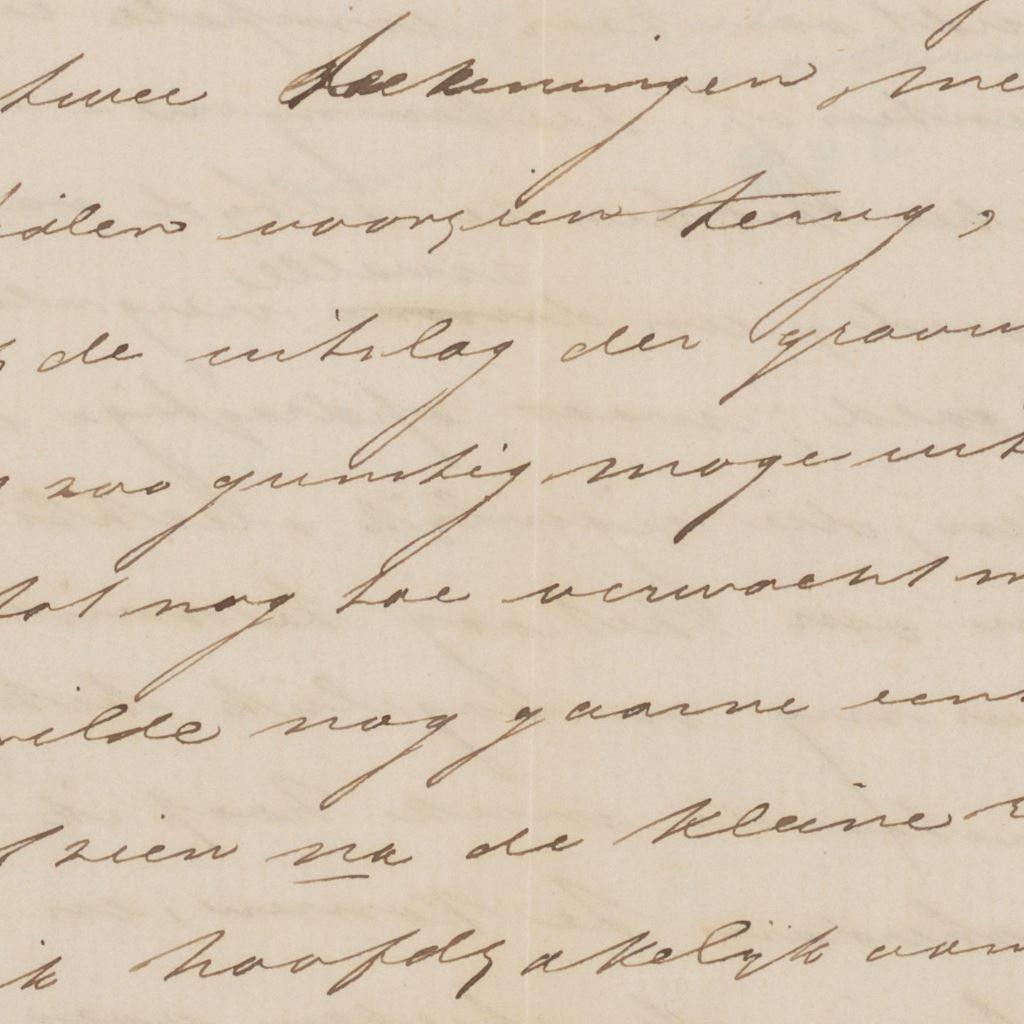 twee teekeningen, me
voorzien terug,
de uitslag der gravu
zoo gunstig moge uit
tot nog toe verwacht m
wilde nog gaarne eens
zien na de kleine
ik hoofdzakelijk aan